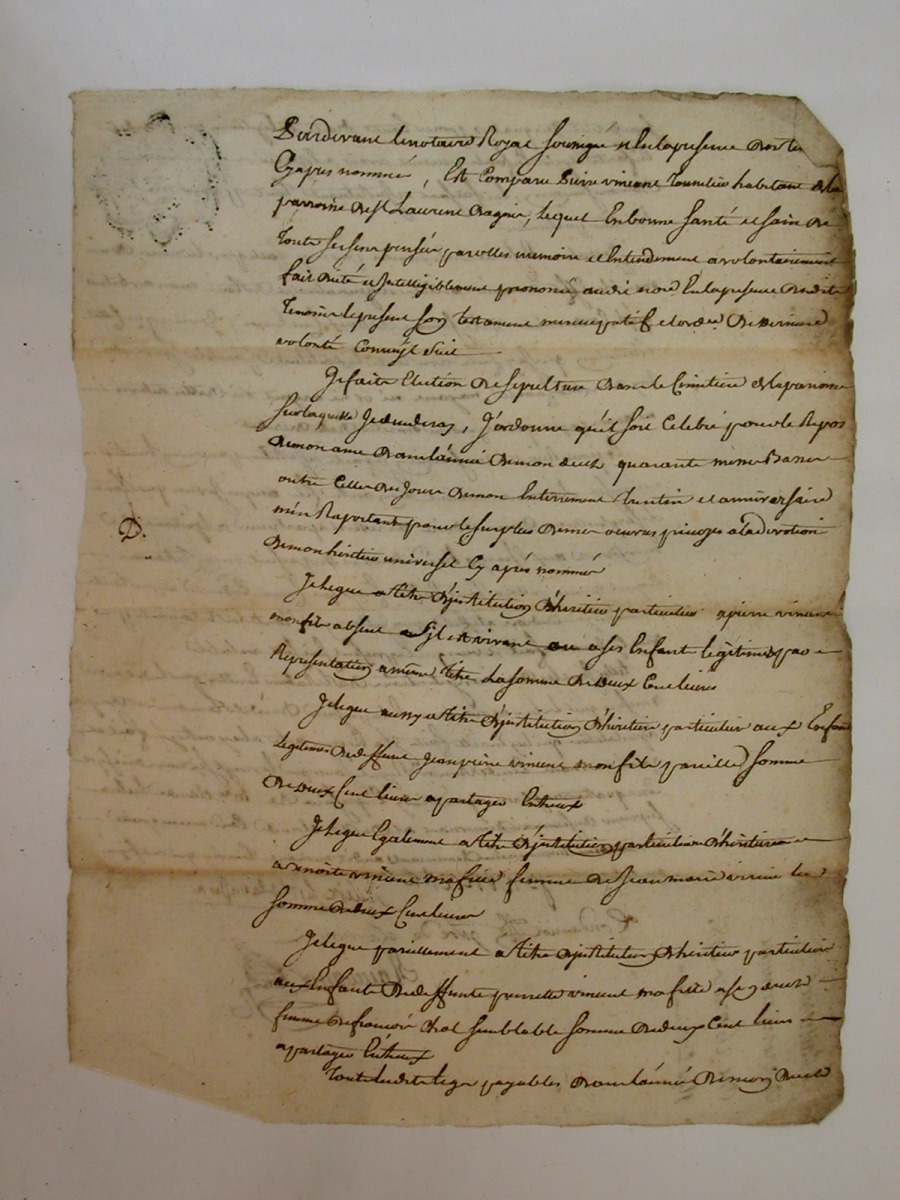 Pardevant le notaire Royal soussigné et En la presence des te
Cy apres nommés, Est Comparu pierre vincent tonnelier habitant de la
parroisse de St Laurent dagnix, lequel En bonne Santé et sain de
toute ses sens pensée parolles memoire et Entendement a volontairement
fait dicté et Intelligiblement prononcé audit nore En la presence desdits
temoins le present son testament nuncupatif et ordce de derniere
volonté Comm'yl suit
Je faits Election de sepulture dans le Cimetiere de la parroisse
sur laquelle Je decederay, J'ordonne qu'il soit Celebré pour le Repos
de mon ame dans lannée de mon deces quarante messe Basse
outre Celles des Jours de mon Enterrement trentin et anniversaire
m'en Raportant pour le surplus de mes oeuvres pieuses a la devotion
de mon heritier universel Cy après nommé
D.
Je legue a titre d'institution d'heritier particulier a pierre vincent
mon fils absent s'jl Est vivant ou a ses Enfants legitimes par
Representation a meme titre La somme de deux Cent livres
Je legue aussy a titre d'institution d'heritier particulier aux Enfans
Legitimes de deffunt Jean pierre vincent mon fils pareille somme
de deux Cent livres a partager Entreux
Je legue Egalement a titre d'institution particuliere d'heritiere
a benoite vincent ma fille femme de Jean marie la
somme de deux Cent livres
Je legue pareillement a titre d'institution d'heritier particulier
aux Enfants de deffunte pierrette vincent ma fille a son deces
femme de francois semblable somme de deux Cent livres
a partager Entreux
Touts lesdits legs payables dans lannée de mon deces